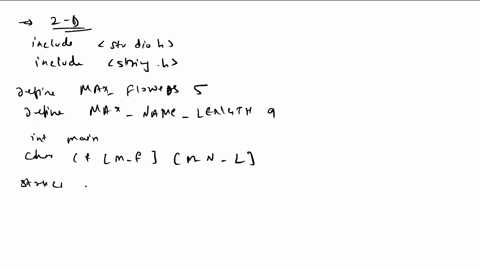 → 2-D
include <stdio.h>
include <string.h>
define MAX_ FLOWERS 5
define MAX _ NAME _ LENGTH 9
int main
char (f [M_F] [M N - L]